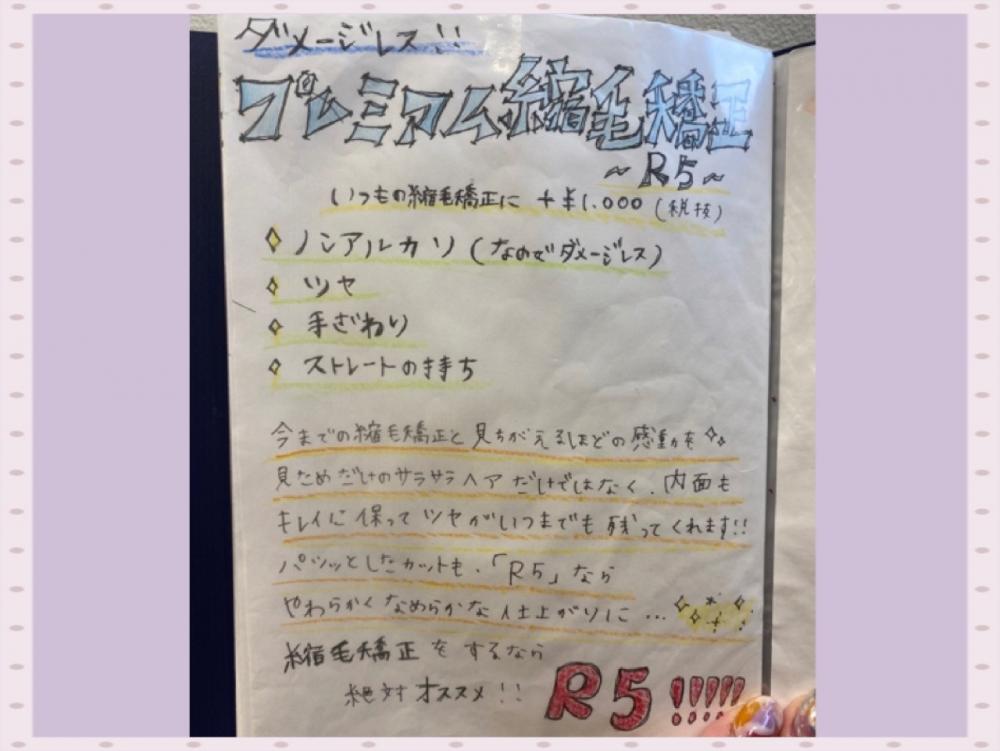 ダメージレス!!
プレミアム縮毛矯正
~R5~
いつもの縮毛矯正に +¥1.000 (税抜)
ノンアルカリ (なのでダメージレス)
ツヤ
手ざわり
ストレートの持ち
今までの縮毛矯正と見ちがえるほどの感動を
見ためだけのサラサラヘアだけではなく、内面も
キレイに保ってツヤがいつまでも残ってくれます!!
パツッとしたカットも、「R5」なら
やわらかくなめらかな仕上がりに…
縮毛矯正をするなら
絶対オススメ!!
R5 !!!!!